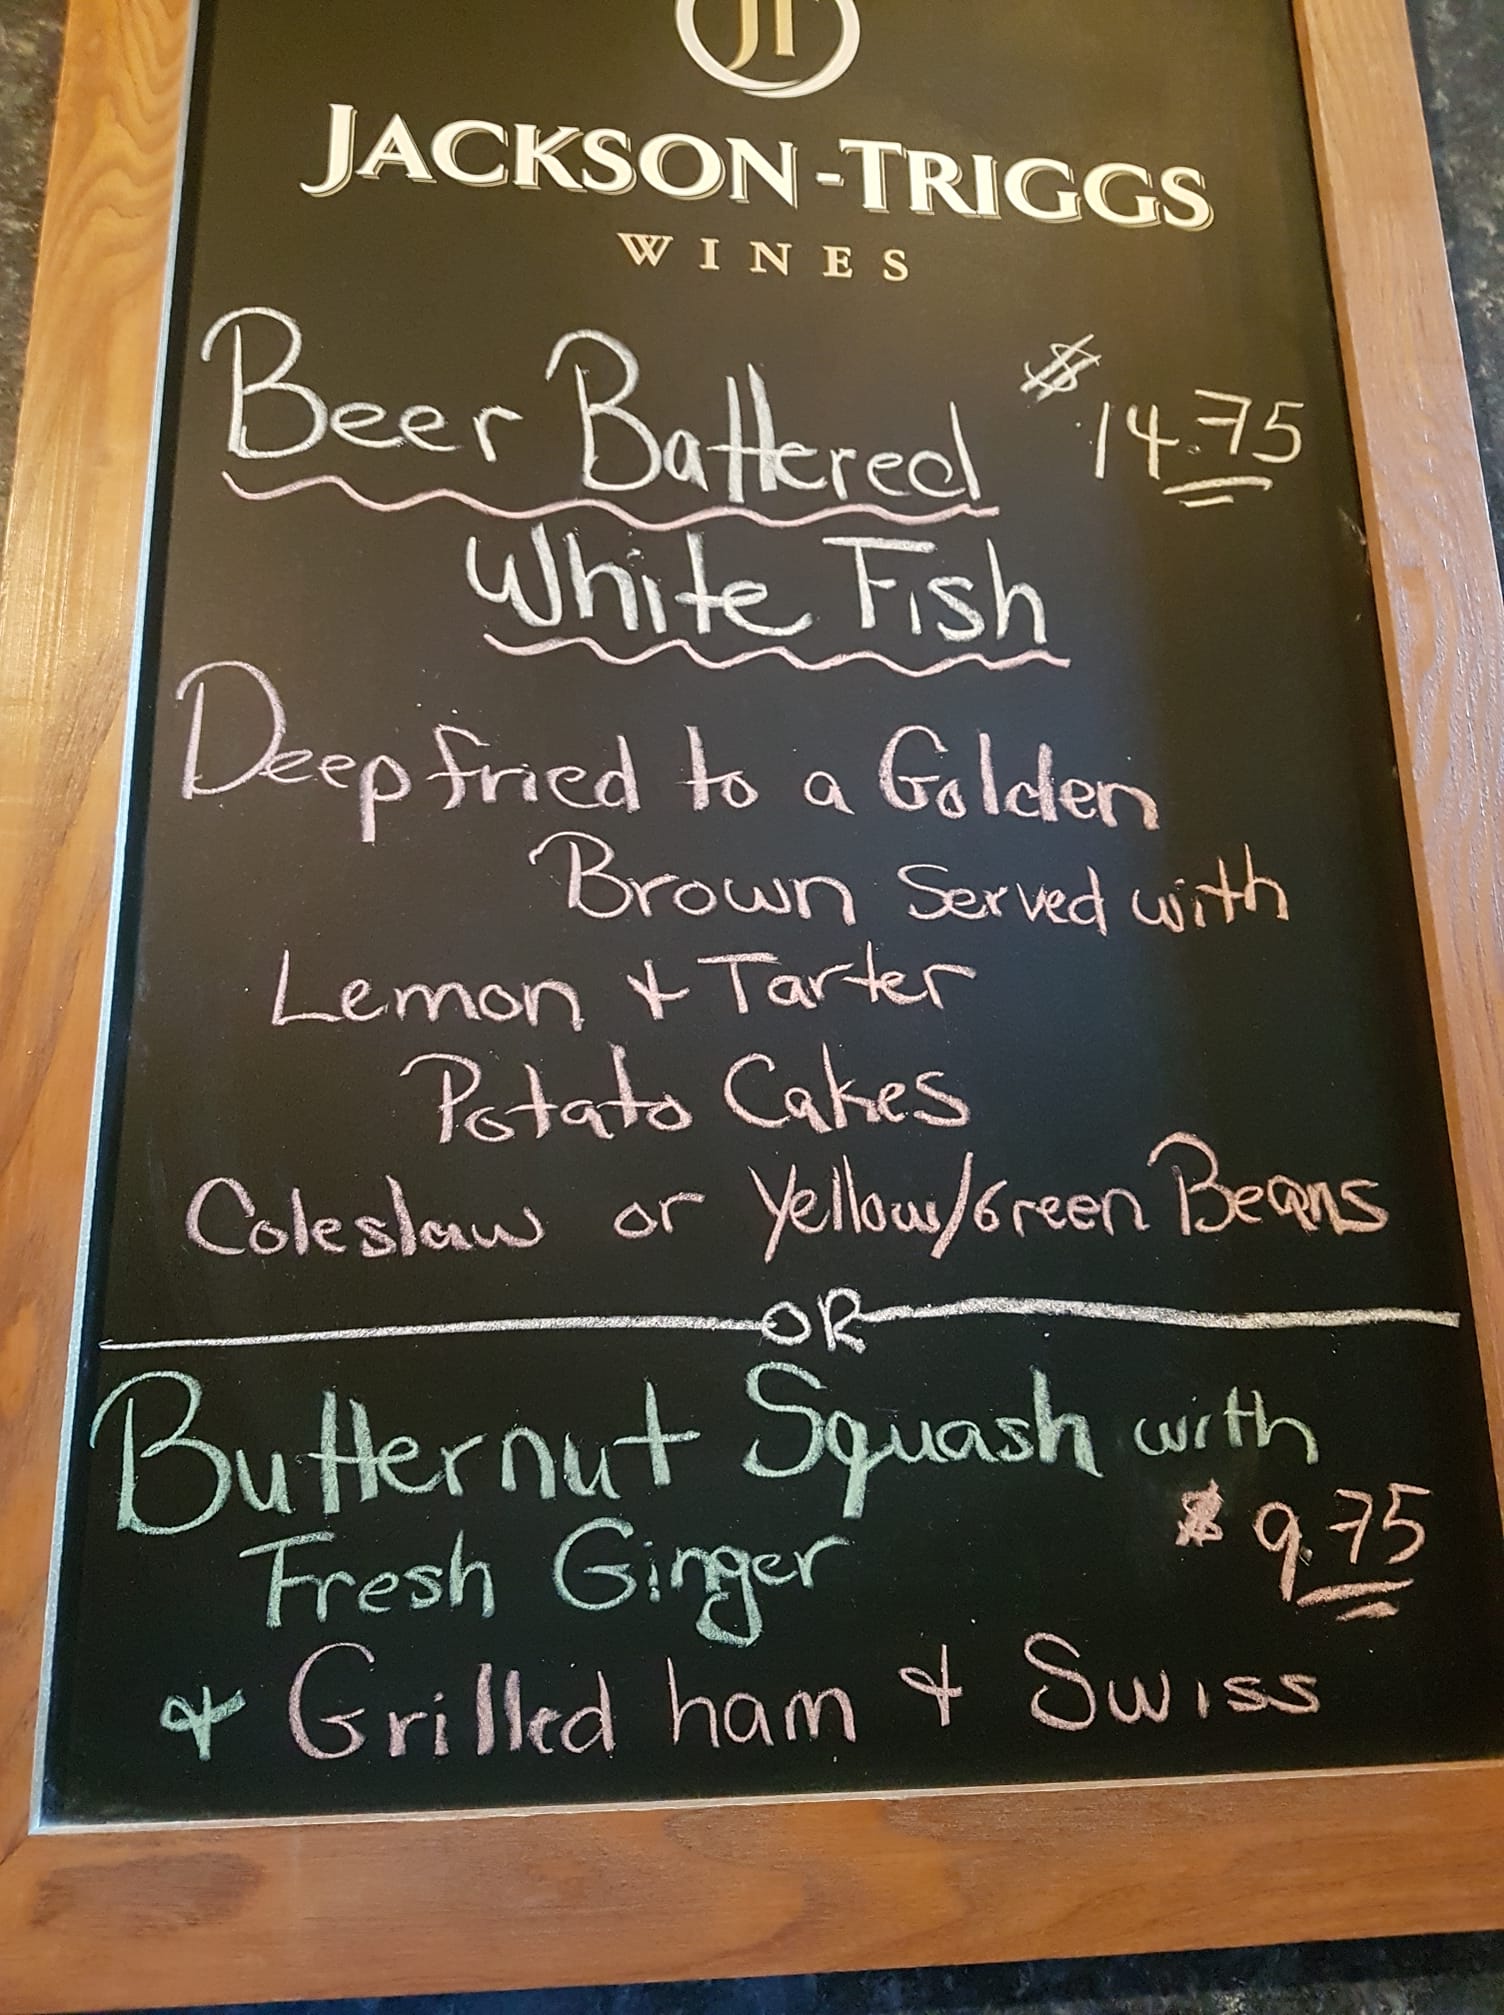 JT
JACKSON-TRIGGS
WINES
Beer Battered $14.75
White Fish
Deep fried to a Golden
Brown Served with
Lemon & Tarter
Potato Cakes
Coleslaw or Yellow/Green Beans
OR
Butternut Squash with
Fresh Ginger $9.75
& Grilled ham & Swiss